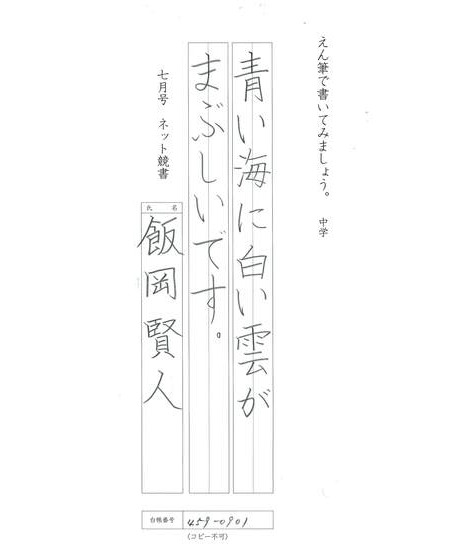 えん筆で書いてみましょう。 中学
青い海に白い雲が
まぶしいです。
七月号 ネット競書
氏名
飯岡賢人
台帳番号 459-0901
(コピー不可)